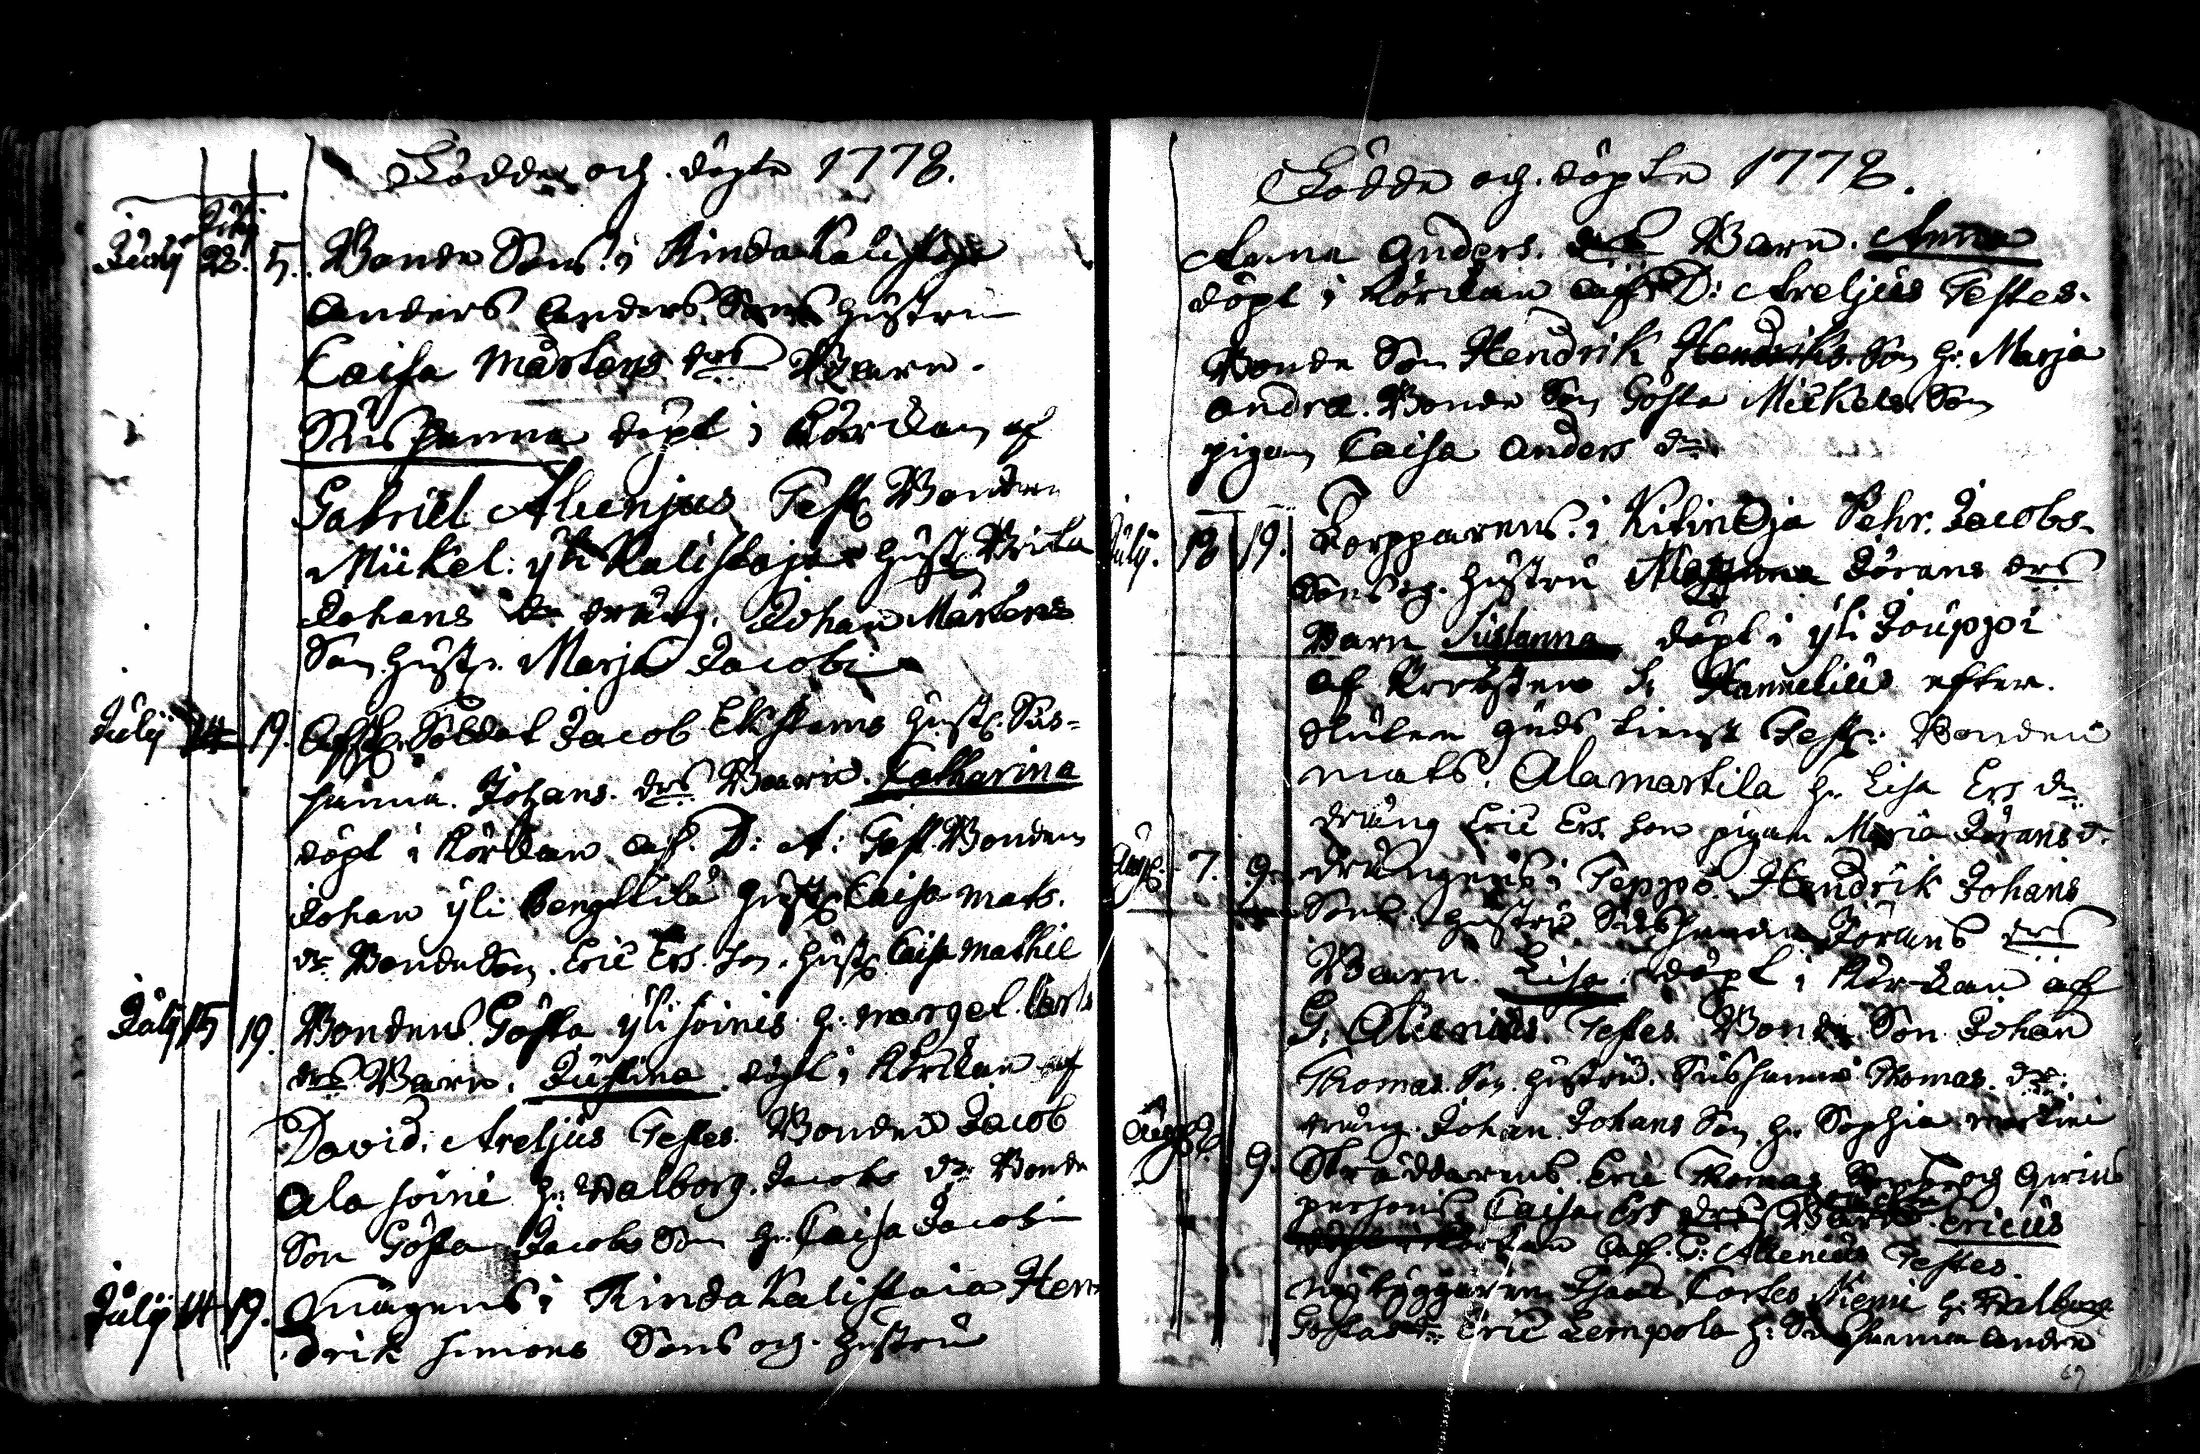 Födde och döpte 1778.
July 28. 5. Bonde Sons i Rinda Kalistaja
Anders Anders Sons hustru
Caisa Mårtens drs Barn.
Susanna döpt i Kÿrckan af
Gabriel Alcenjus Test Bonden
Mickel yli Kalistaja hust Brita
Johans dr dräng. Johan Mårtens
Son hustr. Marja Jacobi
July 14 19. Soldat Jacob Ekstams hust. Sus-
sanna Johans drs Barn. Catharina
döpt i Kÿrckan af D: A: Test Bonden
Johan yli Bengttila hust Caisa Mats
dr Bonde Son. Eric Ers. Son. hust. Caisa Mathie
July 15 19. Bondens Gösta yli soinis h: Marget
drs Barn. Justina döpt i Kÿrckan af
David: Areljus Testes Bonden Jacob
Ala soini h: Walborg. Jacobs dr Bonde
Son Gösta Jacobs Son h: Caisa Jacobi
July 14 19. Drängens i Rinda Kalistaia Hen
drik Simons Sons och hustru
Födde och döpte 1778.
Anna Anders. drs Barn. Anna
döpt i Kÿrckan af D: Areljus Testes.
Bonde Son Hendrik Hendriks Son h: Marja
Andra. Bonde Son Gösta Mickels Son
pigan Caisa Anders dr
July. 18 19. Torpparens i Pehr. Jacobs-
Sons och hustru Jörans drs
Barn Susanna döpt i yli Jouppi
af S: Hannelius efter
sluten guds tienst Test: Bonden
Mats. Alamartila h: Lisa Ers dr
dräng Eric Ers son pigan Maria Jörans d.
Aug. 7. 9. drängens i Teppo Hendrik Johans
Sons hustru Susanna Jörans drs
Barn. Lisa. döpt i Kÿrckan af
G: Alcenius. Testes Bonde Son Johan
Thomas. Son. hustru. Susanna Thomas. dr:
dräng. Johan. Johans Son h: Sophia Martini
Aug 9. Skräddarens Eric Thomas och qwins
person Caisa Ers drs Barn. Ericus
af. G: Alcenius Testes
nybyggaren Kiemi h: Walborg
Göstas dr Eric Lempola h: Susanna Andra
69